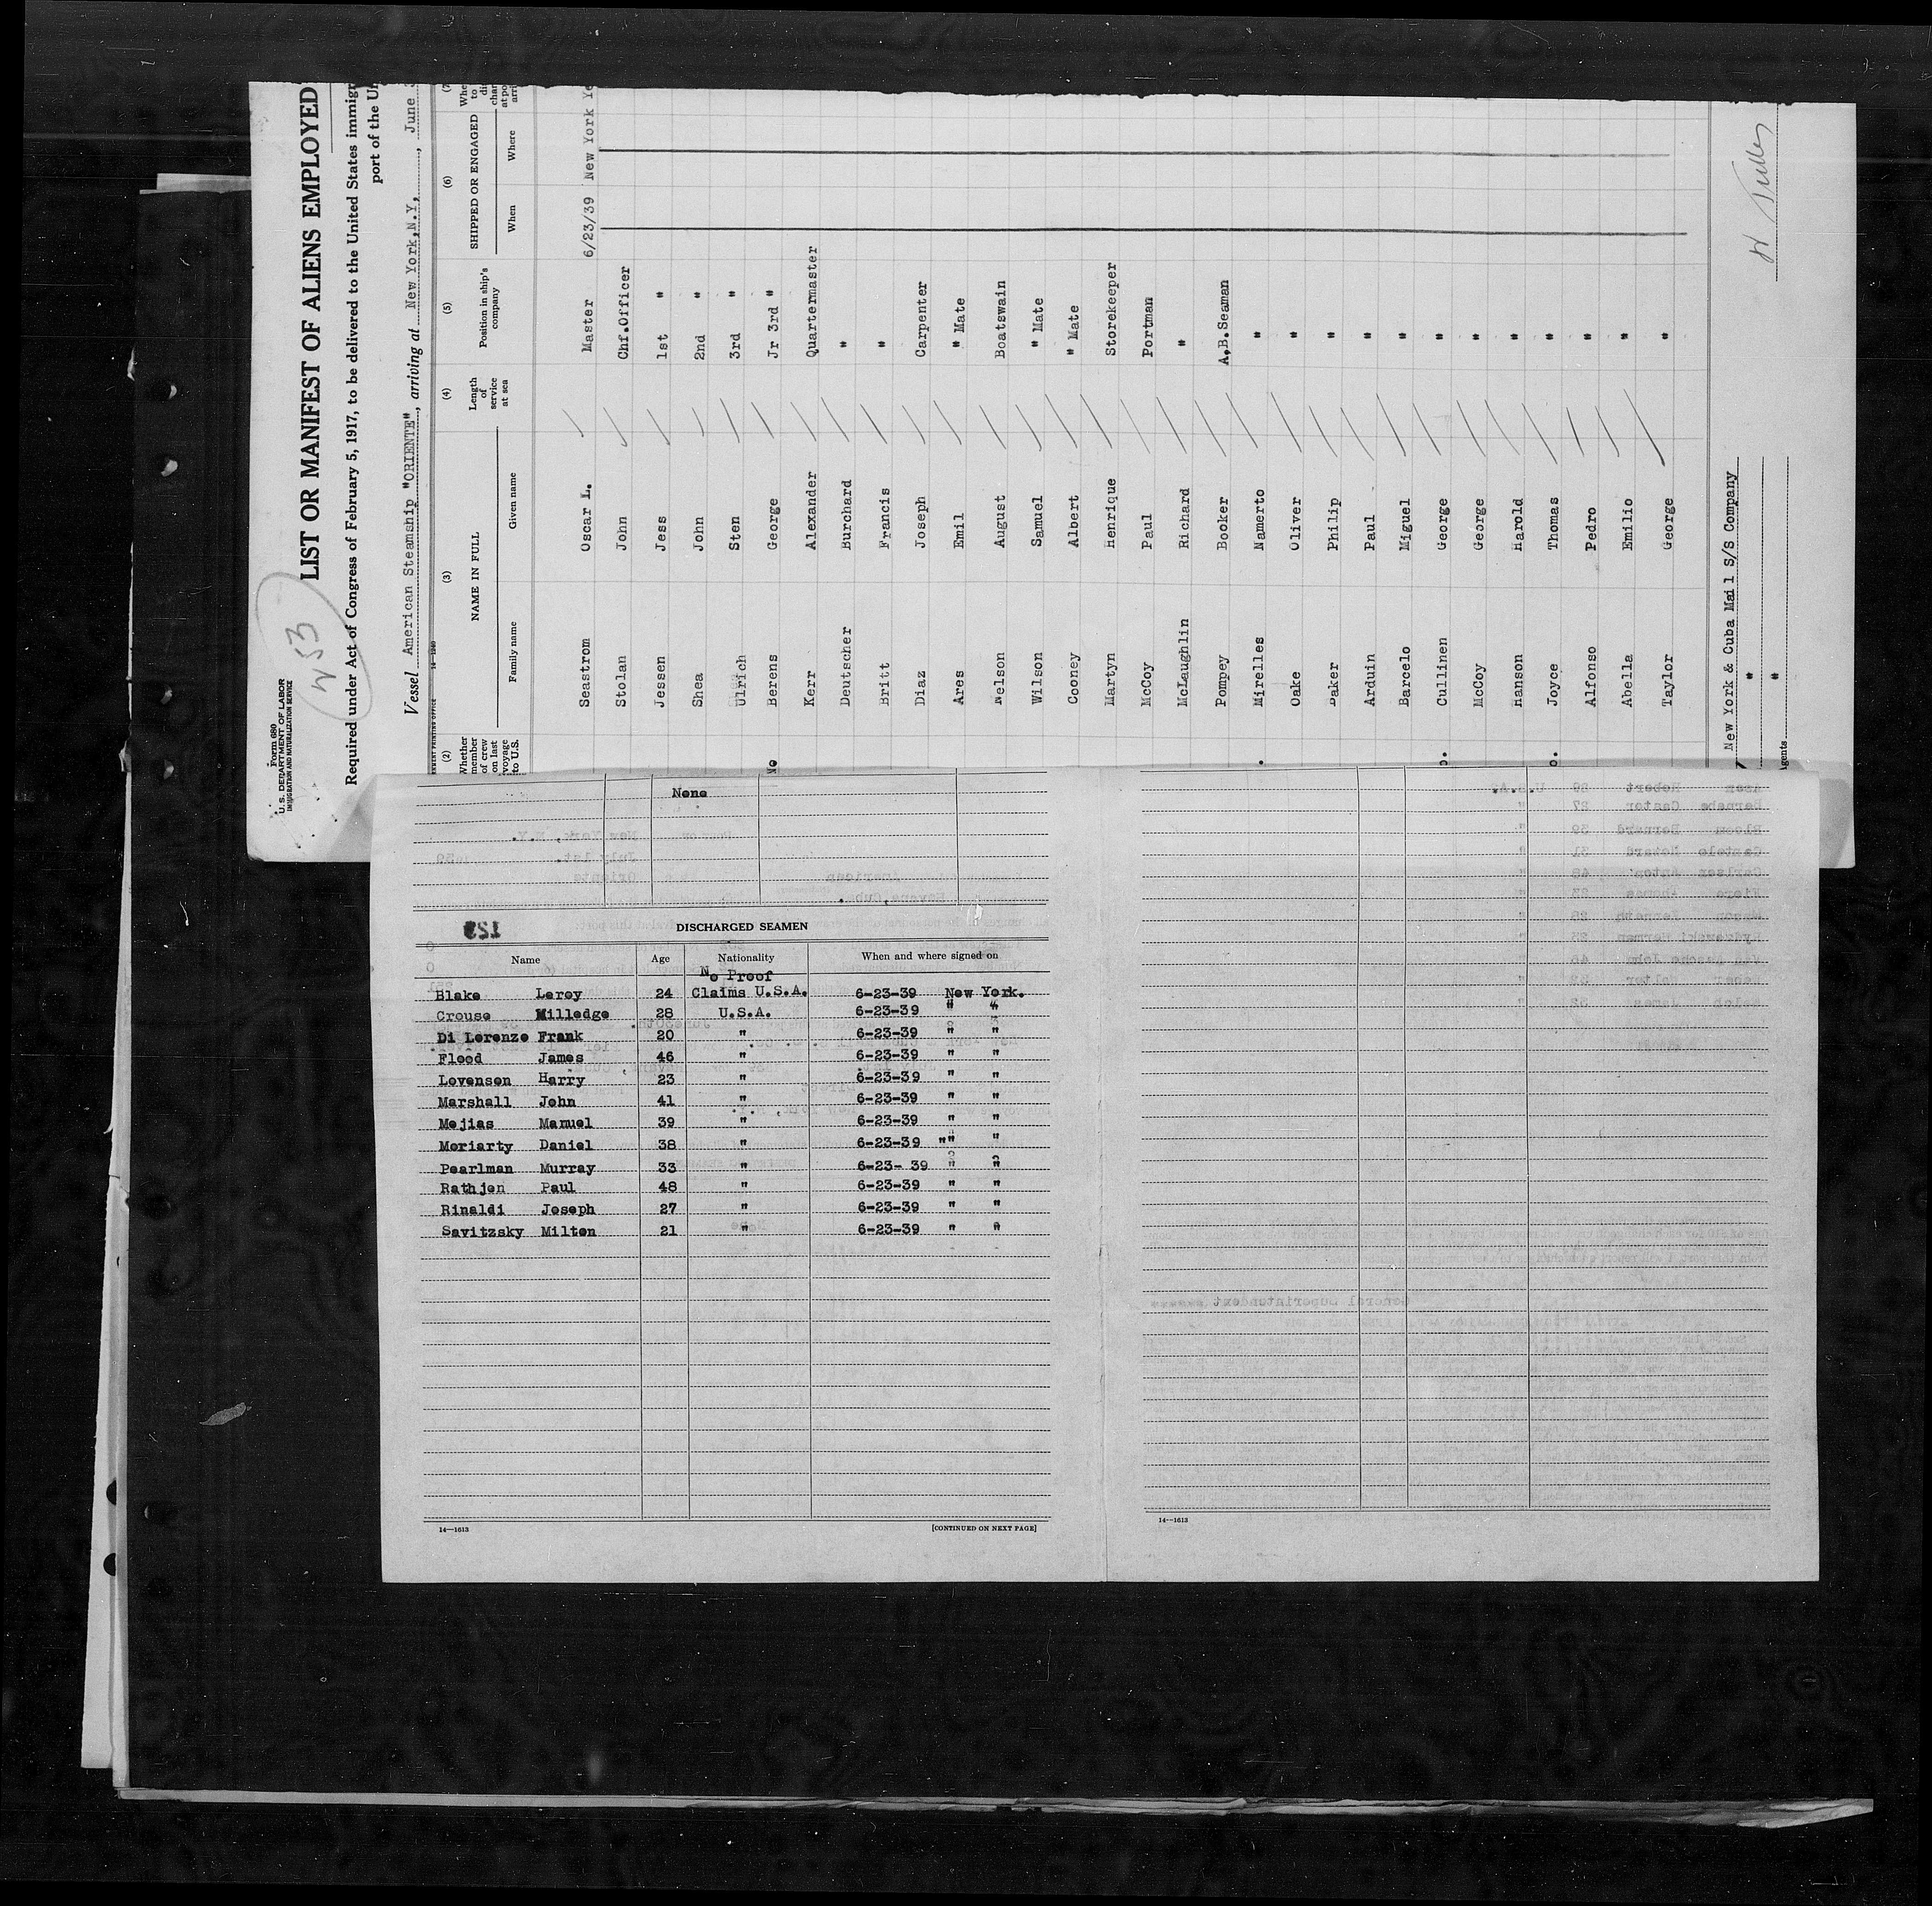 Form 680
U. S. DEPARTMENT OF LABOR
IMMIGRATION AND NATURALIZATION SERVICE
253
LIST OR MANIFEST OF ALIENS EMPLOYED
Required under Act of Congress of February 5, 1917, to be delivered to the United States immigr
port of the Un
Vessel American Steamship "ORIENTE", arriving at New York,N.Y., June
14—1240
(2) (3) (4) (5) (6) (7)
Whether member of crew on last voyage to U.S. NAME IN FULL Length of service at sea Position in ship's company SHIPPED OR ENGAGED
Family name Given name When Where
Seastrom Oscar L. Master 6/23/39 New York Ye
Stolan John Chf.Officer
Jessen Jess 1st "
Shea John 2nd "
Ulrich Sten 3rd "
No Berens George Jr 3rd "
Kerr Alexander Quartermaster
Deutscher Burchard "
Britt Francis "
Diaz Joseph Carpenter
Ares Emil " Mate
Nelson August Boatswain
Wilson Samuel " Mate
Cooney Albert " Mate
Martyn Henrique Storekeeper
McCoy Paul Portman
McLaughlin Richard "
Pompey Booker A.B.Seaman
Mirelles Namerto "
Oake Oliver "
Baker Philip "
Arduin Paul "
Barcelo Miguel "
Cullinen George "
McCoy George "
Hanson Harold "
Joyce Thomas "
Alfonso Pedro "
Abella Emilio "
Taylor George "
New York & Cuba Mail S/S Company
"
"
Agents
None
DISCHARGED SEAMEN
Name Age Nationality When and where signed on
No Proof
Blake Leroy 24 Claims U.S.A. 6-23-39 New York.
Crouse Milledge 28 U.S.A. 6-23-39 " "
Di Lorenzo Frank 20 " 6-23-39 " "
Flood James 46 " 6-23-39 " "
Lovenson Harry 23 " 6-23-39 " "
Marshall John 41 " 6-23-39 " "
Mejias Manuel 39 " 6-23-39 " "
Moriarty Daniel 38 " 6-23-39 "" "
Pearlman Murray 33 " 6-23- 39 " "
Rathjen Paul 48 " 6-23-39 " "
Rinaldi Joseph 27 " 6-23-39 " "
Savitzsky Milton 21 " 6-23-39 " "
14—1613
[CONTINUED ON NEXT PAGE]
14—1613